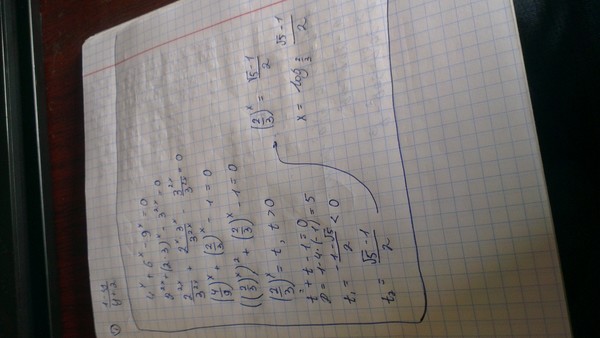 ①
4ˣ + 6ˣ - 9ˣ = 0
2²ˣ + (2·3)ˣ - 3²ˣ = 0
2²ˣ/3²ˣ + 2ˣ·3ˣ/3²ˣ - 3²ˣ/3²ˣ = 0
(4/9)ˣ + (2/3)ˣ - 1 = 0
((2/3)ˣ)² + (2/3)ˣ - 1 = 0
(2/3)ˣ = t, t > 0
t² + t - 1 = 0
D = 1 - 4·(-1) = 5
t₁ = (-1-√5)/2 < 0
t₂ = (√5-1)/2
(2/3)ˣ = (√5-1)/2
x = log_(2/3) (√5-1)/2